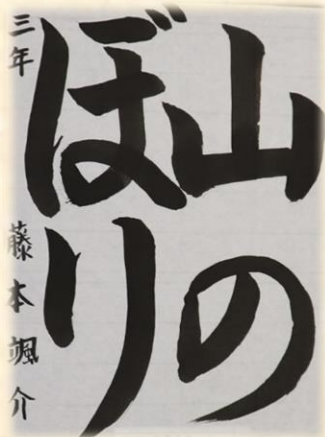 山の
ぼり
三年 藤本颯介